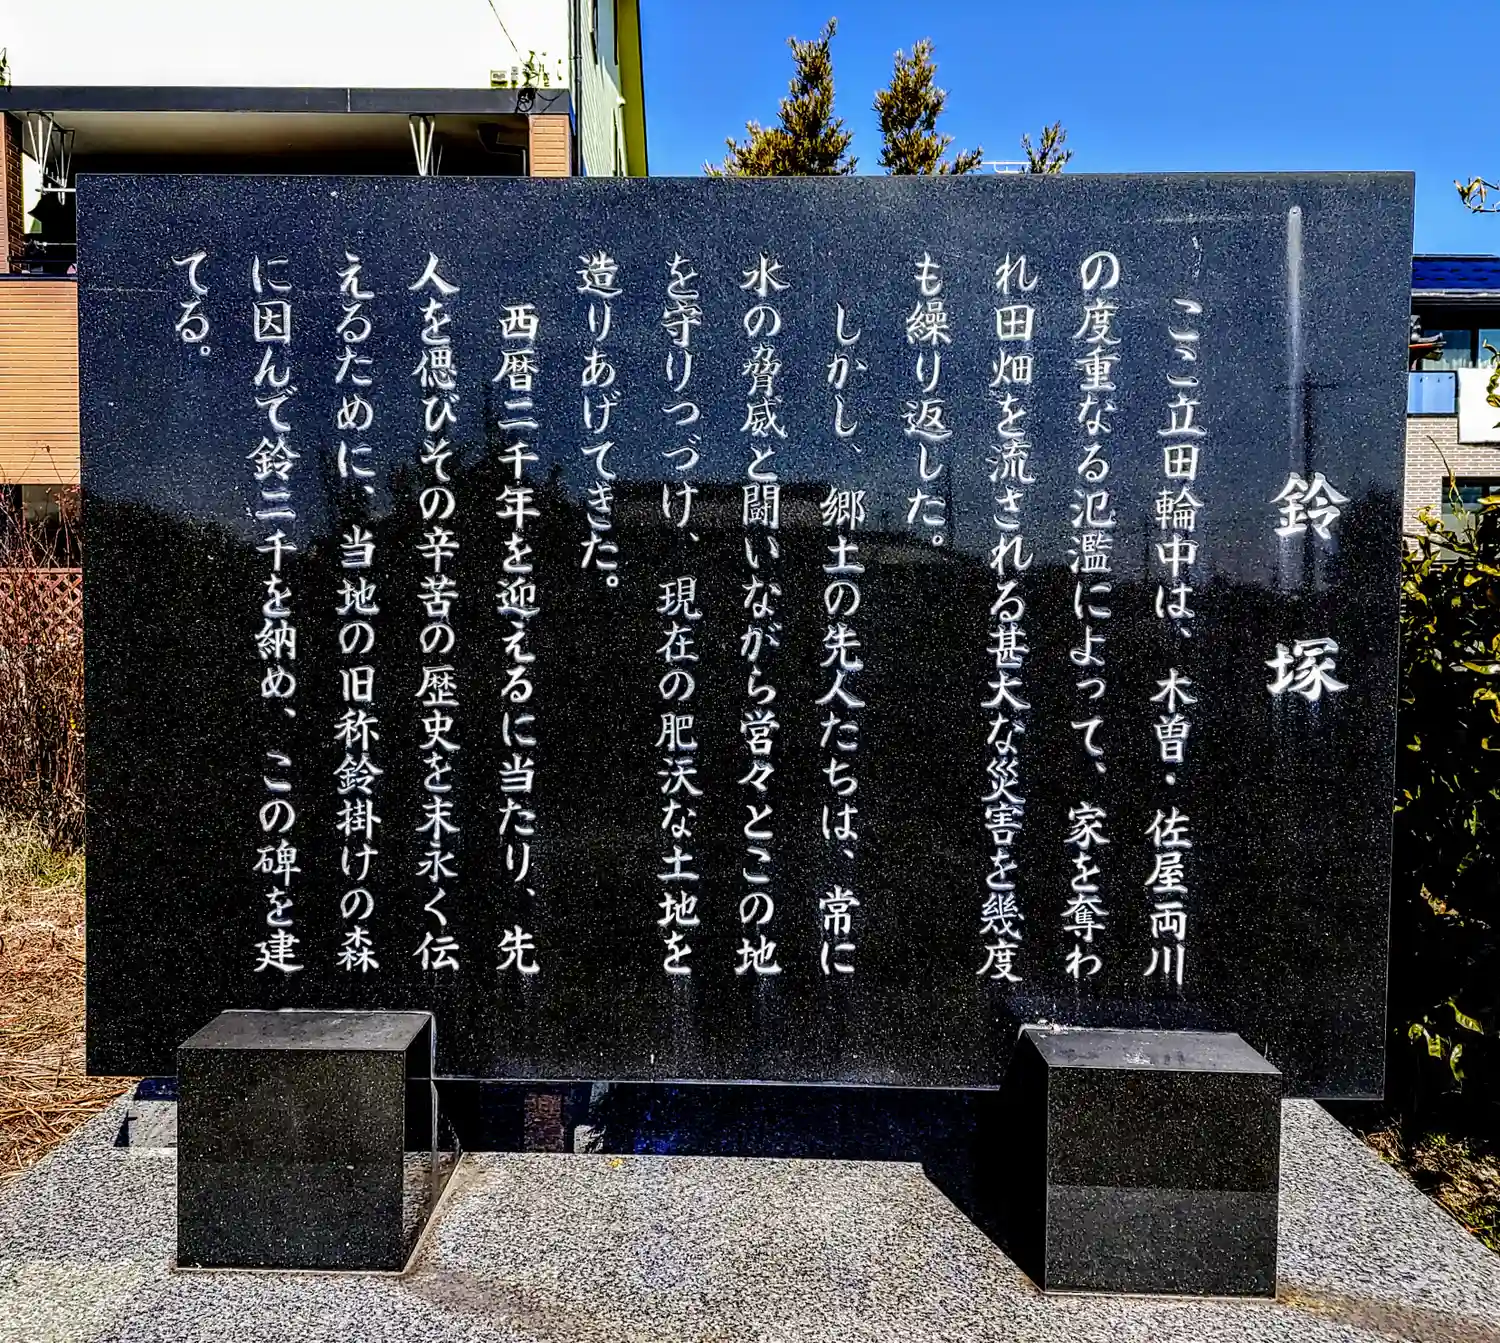 鈴塚
ここ立田輪中は、木曽・佐屋両川
の度重なる氾濫によって、家を奪わ
れ田畑を流される甚大な災害を幾度
も繰り返した。
しかし、郷土の先人たちは、常に
水の脅威と闘いながら営々とこの地
を守りつづけ、現在の肥沃な土地を
造りあげてきた。
西暦二千年を迎えるに当たり、先
人を偲びその辛苦の歴史を末永く伝
えるために、当地の旧称鈴掛けの森
に因んで鈴二千を納め、この碑を建
てる。